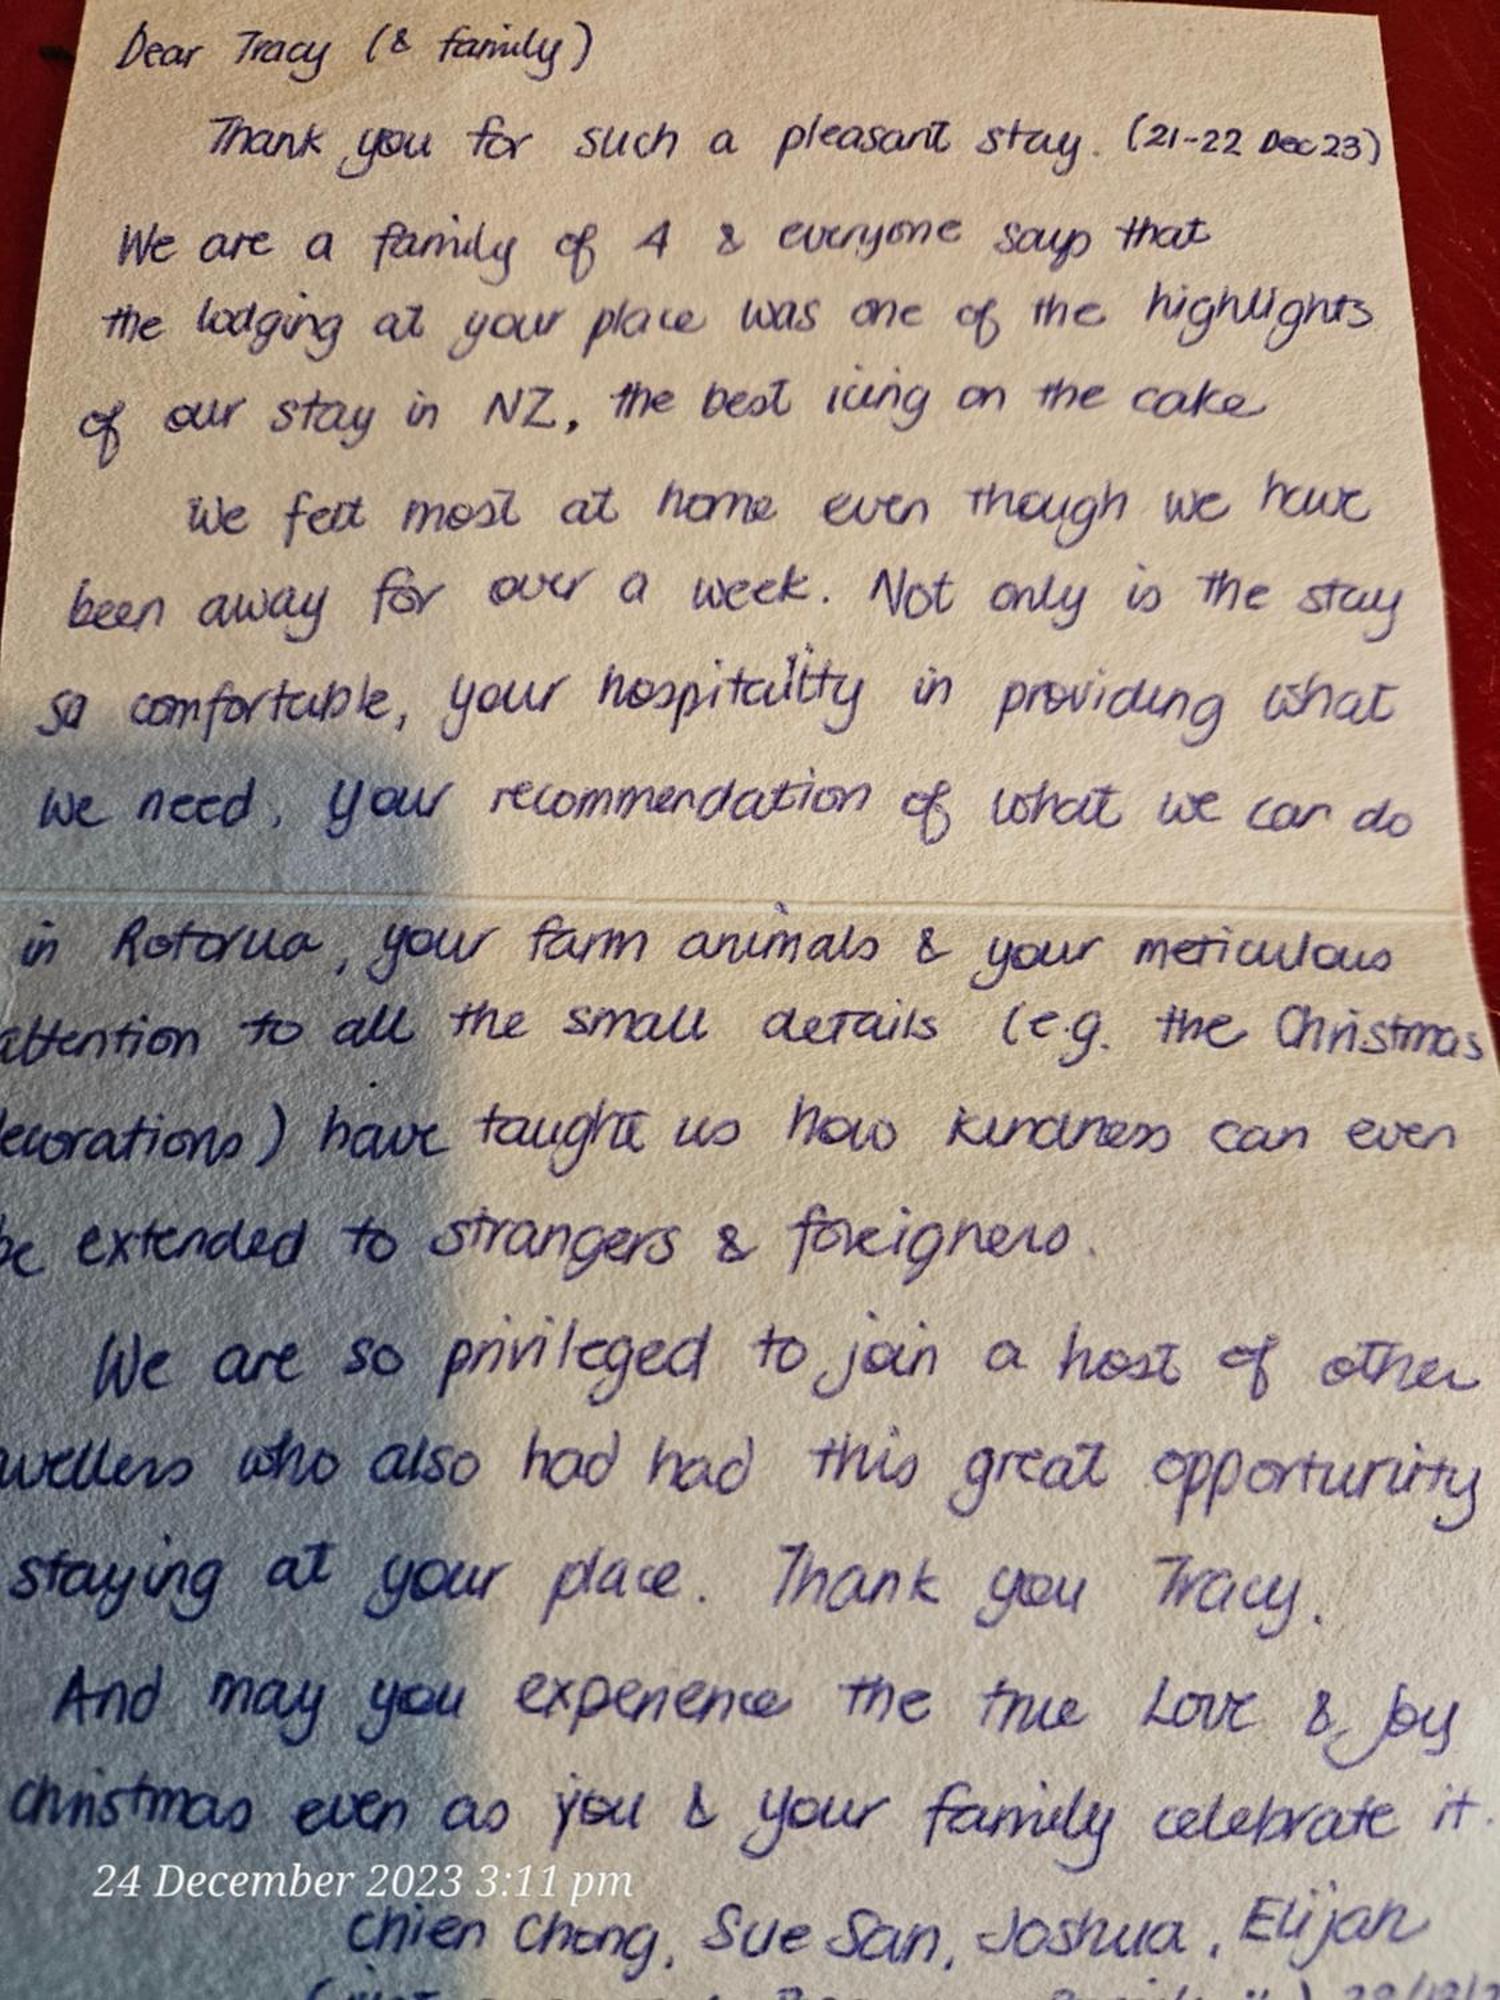 Dear Tracy (& family)
Thank you for such a pleasant stay. (21-22 Dec 23)
We are a family of 4 & everyone says that
the lodging at your place was one of the highlights
of our stay in NZ, the best icing on the cake
We felt most at home even though we have
been away for over a week. Not only is the stay
so comfortable, your hospitality in providing what
we need, your recommendation of what we can do
in Rotorua, your farm animals & your meticulous
attention to all the small details (e.g. the Christmas
decorations) have taught us how kindness can even
be extended to strangers & foreigners.
We are so privileged to join a host of other
wellers who also had had this great opportunity
staying at your place. Thank you Tracy.
And may you experience the true Love & Joy
christmas even as you & your family celebrate it.
24 December 2023 3:11 pm
Chien Chong, Sue San, Joshua, Elijah